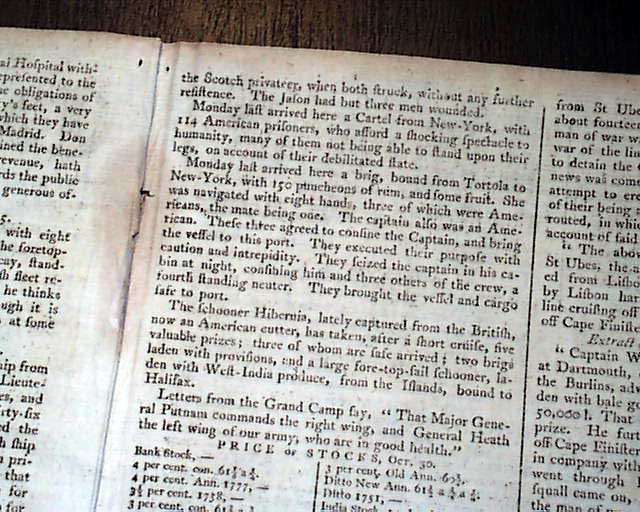 al Hospital with-
epresented to the
e obligations of
y's feet, a very
which they have
Madrid. Don
ined the bene-
revenue, hath
rds the public
generous of-
5.
with eight
he foretop-
cay, ſtand-
ſh fleet re-
he thinks
ugh it is
at ſome
hip from
Lieute-
es, and
rty-ſix
ed the
h ſhip
n pri-
that
for
for
the Scotch privateer, when both ſtruck, without any further
reſiſtence. The Jaſon had but three men wounded.
Monday laſt arrived here a Cartel from New-York, with
114 American priſoners, who afford a ſhocking ſpectacle to
humanity, many of them not being able to ſtand upon their
legs, on account of their debilitated ſtate.
Monday laſt arrived here a brig, bound from Tortola to
New-York, with 150 puncheons of rum, and ſome fruit. She
was navigated with eight hands, three of which were Ame-
ricans, the mate being one. The captain alſo was an Ame-
rican. Theſe three agreed to confine the Captain, and bring
the veſſel to this port. They executed their purpoſe with
caution and intrepidity. They ſeized the captain in his ca-
bin at night, confining him and three others of the crew, a
fourth ſtanding neuter. They brought the veſſel and cargo
ſafe to port.
The ſchooner Hibernia, lately captured from the Britiſh,
now an American cutter, has taken, after a ſhort cruiſe, five
valuable prizes; three of whom are ſafe arrived; two brigs
laden with proviſions, and a large fore-top-ſail ſchooner, la-
den with Weſt-India produce, from the Iſlands, bound to
Halifax.
Letters from the Grand Camp ſay, "That Major Gene-
ral Putnam commands the right wing, and General Heath
the left wing of our army, who are in good health."
PRICE of STOCKS, Oct. 30.
Bank Stock, —
4 per cent. con. 61½ a ¾.
4 per cent. Ann. 1777, —
3½ per cent. 1758, —
3 per cent. con.
3 per cent. Old Ann.
Ditto New Ann. 61½
Ditto 1751, —
India Stock,
from St Ubes
about fourteen
man of war w
war of the lin
to detain the
news was com
attempt to
of their being
routed, in which
account of ſaid
"The above
St Ubes, the
ed from Liſb
by Liſbon ha
line cruiſing off
off Cape Finiſter
Extract
"Captain W
at Dartmouth,
the Burlins, ad
den with bale go
50,000l. That
prize. He fur
off Cape Finiſter
in company with
went through
ſquall came on,
the man of